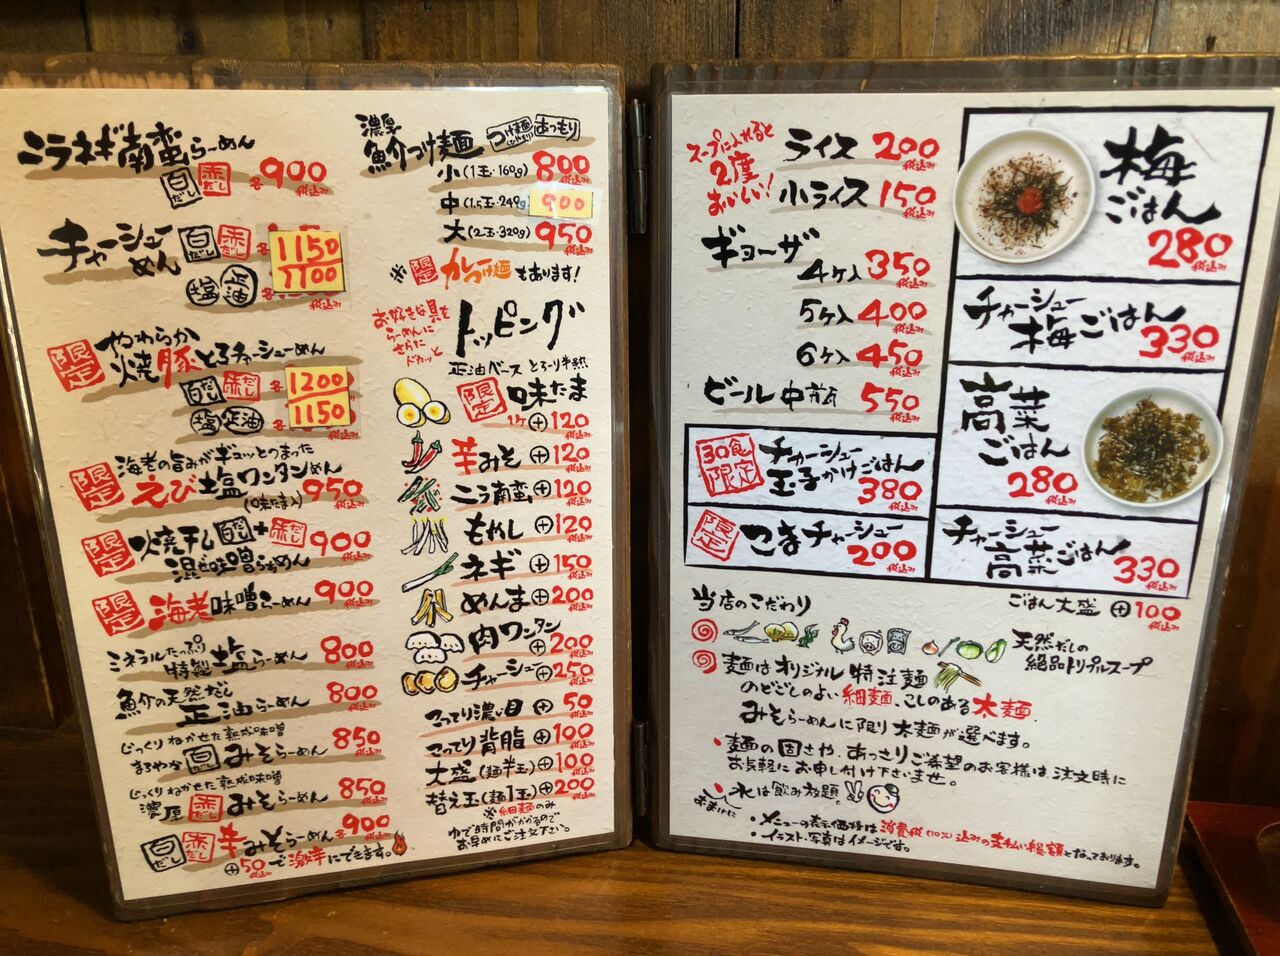 ニラネギ南蛮らーめん
白だし 赤だし 各900 税込み
チャーシューめん
白だし 赤だし 1150
塩 正油 1100 税込み
限定 やわらか焼豚とろチャーシューめん
白だし 赤だし 各1200
塩 正油 1150 税込み
限定 海老の旨みがギュッとつまった
えび塩ワンタンめん
(味たま入) 950 税込み
限定 焼干し白だし+赤だし
混ぜ味噌らぁめん 900 税込み
限定 海老味噌らーめん 900 税込み
ミネラルたっぷり
特製塩らーめん 800 税込み
魚介の天然だし
正油らーめん 800 税込み
じっくりねかせた熟成味噌
まろやか白みそらーめん 850 税込み
じっくりねかせた熟成味噌
濃厚赤みそらーめん 850 税込み
白だし 赤だし 辛みそらーめん 各900 税込み
+50で激辛にできます。
税込み
濃厚魚介つけ麺 つけ麺 あつもり
小(1玉・160g) 800 税込み
中(1.5玉・240g) 900
大(2玉・320g) 950 税込み
※限定 からつけ麺もあります!
お好きな具をらーめんにさらにドカッと
トッピング
正油ベース とろーり半熟
限定 味たま
1ケ+120 税込み
辛みそ+120 税込み
ニラ南蛮+120 税込み
もやし+120 税込み
ネギ+150 税込み
めんま+200 税込み
肉ワンタン+200 税込み
チャーシュー+250 税込み
こってり濃い目+50 税込み
こってり背脂+100 税込み
大盛(麺半玉)+100 税込み
替え玉(麺1玉)+200 税込み
※細麺のみ
ゆで時間がかかるので
お早めにご注文下さい。
スープに入れると2度おいしい!
ライス 200 税込み
小ライス 150 税込み
ギョーザ
4ケ入 350 税込み
5ケ入 400 税込み
6ケ入 450 税込み
ビール中瓶 550 税込み
30食限定 チャーシュー玉子かけごはん
380 税込み
限定 こまチャーシュー
200 税込み
梅ごはん
280 税込み
チャーシュー梅ごはん
330 税込み
高菜ごはん
280 税込み
チャーシュー高菜ごはん
330 税込み
ごはん大盛+100 税込み
当店のこだわり
天然だしの絶品トリプルスープ
麺はオリジナル特注麺
のどごしのよい細麺、こしのある太麺。
みそらーめんに限り太麺が選べます。
・麺の固さや、あっさりご希望のお客様は、注文時に
お気軽にお申し付け下さいませ。
・水は飲み放題。
おまけに
・メニューの表示価格は消費税(10%)込みの支払い総額となっております。
・イラスト、写真はイメージです。